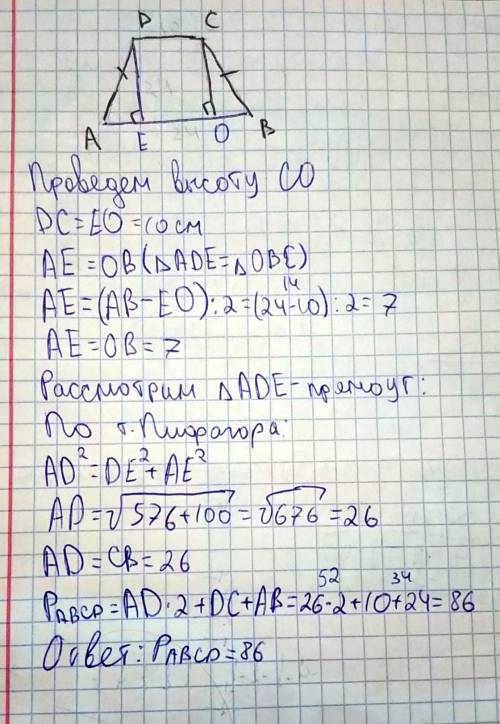 D C
A E O B
24
Проведем высоту CO
DC=EO=10 см
AE=OB(△ADE=△OBC)
14
AE=(AB-EO):2=(24-10):2=7
AE=OB=7
Рассмотрим △ADE-прямоуг:
По т.Пифагора:
AD²=DE²+AE²
AD=√576+100=√676=26
AD=CB=26
52 34
PABCD=AD·2+DC+AB=26·2+10+24=86
Ответ: PABCD=86